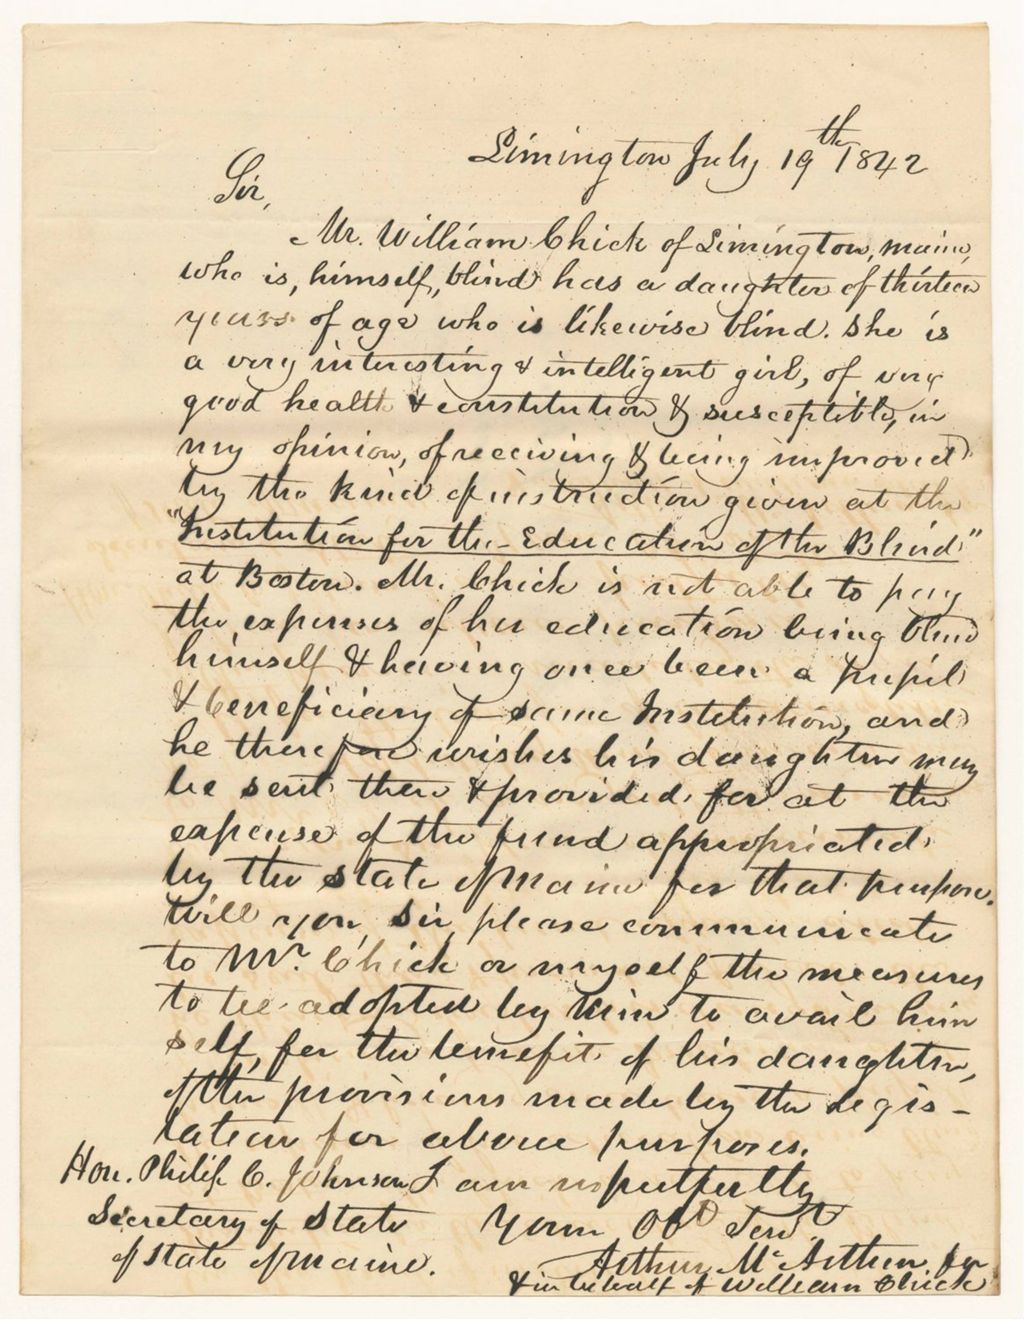 Limington July 19th 1842
Sir,
Mr. William Chick of Limington, Maine,
who is, himself, blind has a daughter of thirteen
years of age who is likewise blind. She is
a very interesting & intelligent girl, of very
good health & constitution & susceptible, in
my opinion, of receiving & being improved
by the kind of instruction given at the
"Institution for the Education of the Blind"
at Boston. Mr. Chick is not able to pay
the expenses of her education being blind
himself & having once been a pupil
& beneficiary of same Institution, and
he therefore wishes his daughter may
be sent there & provided for at the
expense of the fund appropriated
by the State of Maine for that purpose.
Will you, Sir, please communicate
to Mr. Chick or myself the measures
to be adopted by him to avail him
self, for the benefit of his daughter,
of the provisions made by the Legis-
lature for above purposes.
I am respectfully
Your Obt Servt
Arthur McArthur for
& in behalf of William Chick
Hon. Philip C. Johnson
Secretary of State
of State of Maine.